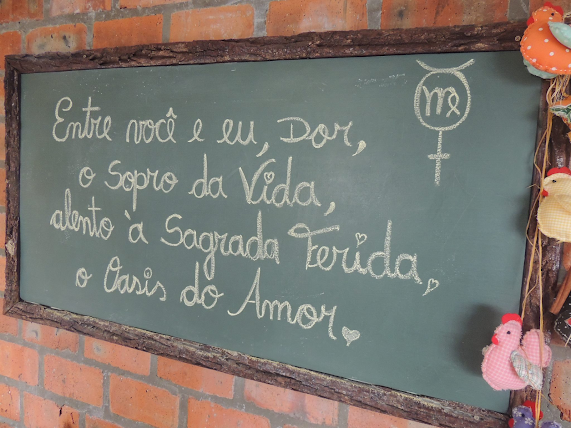 Entre você e eu, Dor,
o Sopro da Vida,
alento à Sagrada Ferida,
o Oasis do Amor.